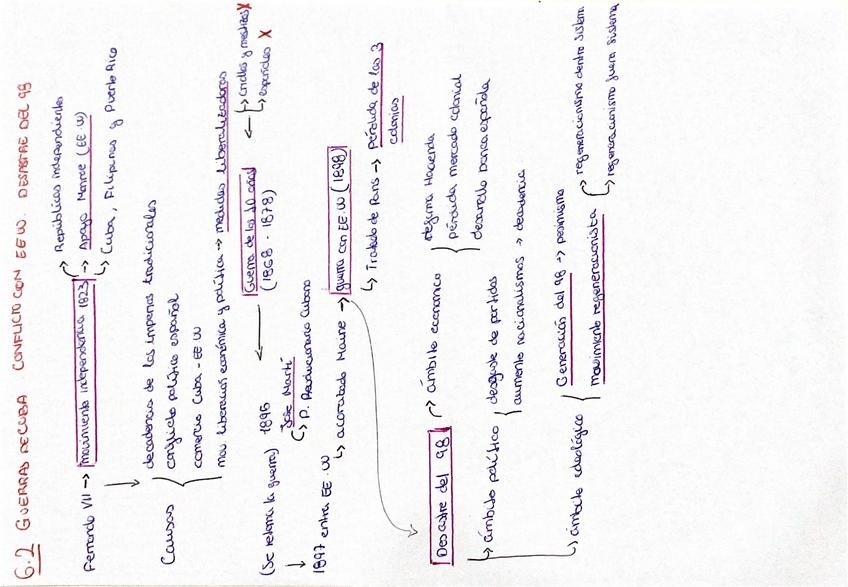 6.2 GUERRAS DE CUBA CONFLICTO CON EE.UU. DESASTRE DEL 98
Repúblicas independientes
Fernando VII → movimiento independencia 1823 → Apoyo Monroe (EE.UU)
Cuba, Filipinas y Puerto Rico
decadencia de los imperios tradicionales
Causas
conflicto político español
comercio Cuba - EE.UU
mov. liberación económica y política → medidas liberalizadoras
criollos y mestizos X
españoles X
Guerra de los 10 años
(1868 - 1878)
(Se retoma la guerra) 1895
José Martí
P. Revolucionario Cubano
1897 entra EE.UU
acorazado Maine → guerra con EE.UU (1898)
Tratado de París → Pérdida de las 3
colonias
Desastre del 98
ámbito económico
reforma Hacienda
pérdida mercado colonial
desarrollo banca española
ámbito político
desgaste de partidos
aumento nacionalismos → decadencia
ámbito ideológico
Generación del 98 → pesimismo
movimiento regeneracionista
regeneracionismo dentro sistema
regeneracionismo fuera sistema